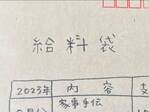 給料袋
2023年 内容 支
家事手伝